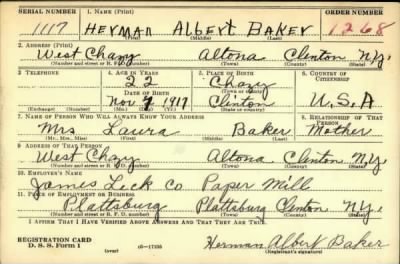 SERIAL NUMBER 1. NAME (Print) ORDER NUMBER
1117 HEYMAN ALBERT BAKER 1268
(First) (Middle) (Last)
2. ADDRESS (Print)
West Chazy Altona Clinton N.Y.
(Number and street or R. F. D. number) (Town) (County) (State)
3. TELEPHONE 4. AGE IN YEARS 5. PLACE OF BIRTH 6. COUNTRY OF CITIZENSHIP
22 Chazy
DATE OF BIRTH (Town or county)
Nov 7 1917 Clinton U.S.A
(Exchange) (Number) (Mo.) (Day) (Yr.) (State or country)
7. NAME OF PERSON WHO WILL ALWAYS KNOW YOUR ADDRESS 8. RELATIONSHIP OF THAT PERSON
Mrs Laura Baker Mother
(Mr., Mrs., Miss) (First) (Middle) (Last)
9. ADDRESS OF THAT PERSON
West Chazy Altona Clinton N.Y.
(Number and street or R. F. D. number) (Town) (County) (State)
10. EMPLOYER'S NAME
James Leck Co Paper Mill
11. PLACE OF EMPLOYMENT OR BUSINESS
Plattsburg Plattsburg Clinton N.Y.
(Number and street or R. F. D. number) (Town) (County) (State)
I AFFIRM THAT I HAVE VERIFIED ABOVE ANSWERS AND THAT THEY ARE TRUE.
REGISTRATION CARD
D. S. S. Form 1 (over) 16—17105 Herman Albert Baker
(Registrant's signature)